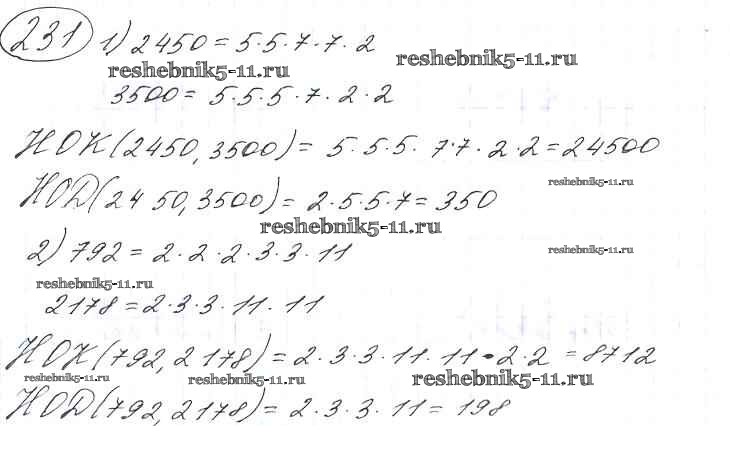 231 1) 2450 = 5·5·7·7·2
reshebnik5-11.ru reshebnik5-11.ru
3500 = 5·5·5·7·2·2
НОК(2450, 3500) = 5·5·5·7·7·2·2 = 24500
reshebnik5-11.ru
НОD(2450, 3500) = 2·5·5·7 = 350
reshebnik5-11.ru
2) 792 = 2·2·2·3·3·11
reshebnik5-11.ru
reshebnik5-11.ru
2178 = 2·3·3·11·11
НОК(792, 2178) = 2·3·3·11·11·2·2 = 8712
reshebnik5-11.ru reshebnik5-11.ru reshebnik5-11.ru
НОD(792, 2178) = 2·3·3·11 = 198